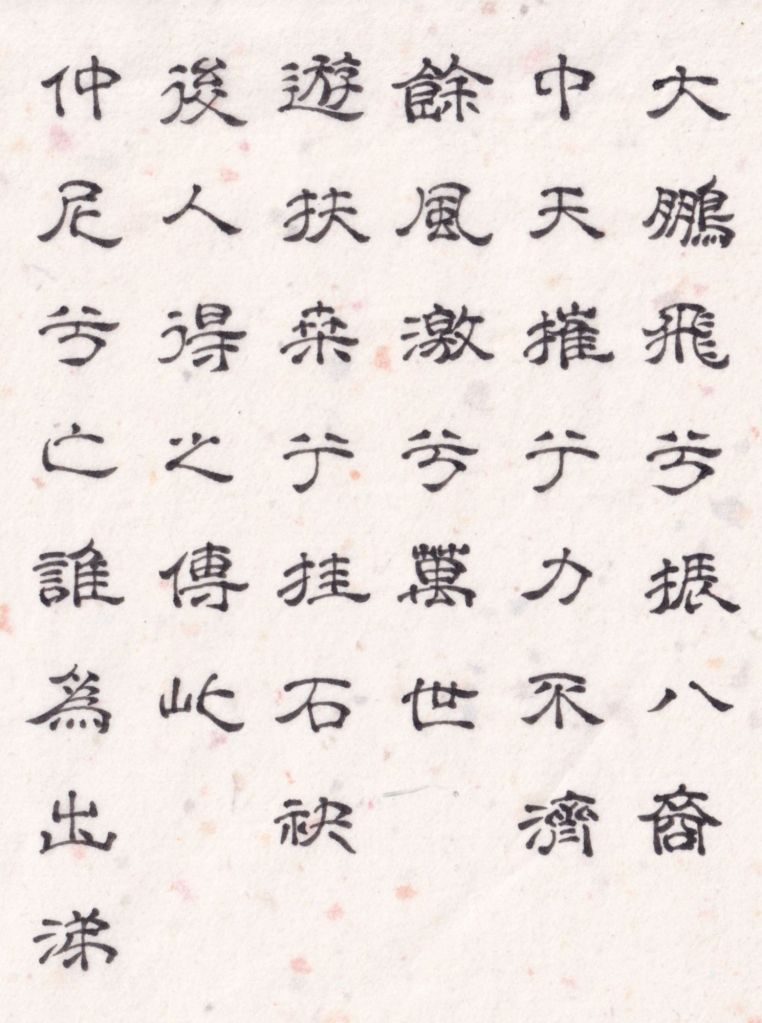 大鵬飛兮振八裔
中天摧兮力不濟
餘風激兮萬世
遊扶桒兮挂石袂
後人得之傳此
仲尼兮亡誰爲出涕